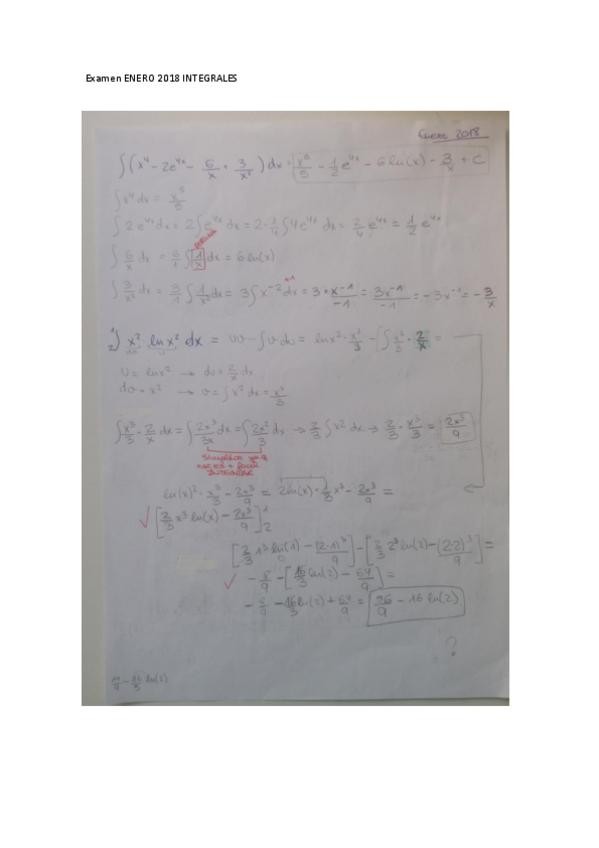 Examen ENERO 2018 INTEGRALES
Enero 2018
∫(x⁴ - 2e⁴ˣ - 6/x + 3/x²) dx = x⁵/5 - 1/2 e⁴ˣ - 6 ln(x) - 3/x + C
∫x⁴ dx = x⁵/5
∫2e⁴ˣ dx = 2∫e⁴ˣ dx = 2·1/4 ∫4e⁴ˣ dx = 2/4 e⁴ˣ = 1/2 e⁴ˣ
∫6/x dx = 6/1 ∫1/x dx = 6 ln(x)
∫3/x² dx = 3/1 ∫1/x² dx = 3∫x⁻² dx = 3·x⁻¹/-1 = 3x⁻¹/-1 = -3x⁻¹ = -3/x
+1
∫ x²·ln x² dx = uv - ∫v du = ln x²·x³/3 - ∫x³/3·2/x =
u = ln x² → du = 2/x dx
dv = x² → v = ∫x² dx = x³/3
∫x³/3·2/x dx = ∫2x³/3x dx = ∫2x²/3 dx → 2/3 ∫x² dx → 2/3·x³/3 = 2x³/9
INTEGRAR
ln(x)²·x³/3 - 2x³/9 = 2ln(x)·1/3 x³ - 2x³/9 =
[2/3 x³ ln(x) - 2x³/9]
[2/3 1³ ln(1) - (2·1)³/9] - [2/3 2³ ln(2) - (2·2)³/9] =
0
- [16/3 ln(2) - 64/9] =
- 16/3 ln(2) + 64/9 = 96/9 - 16 ln(2)
?